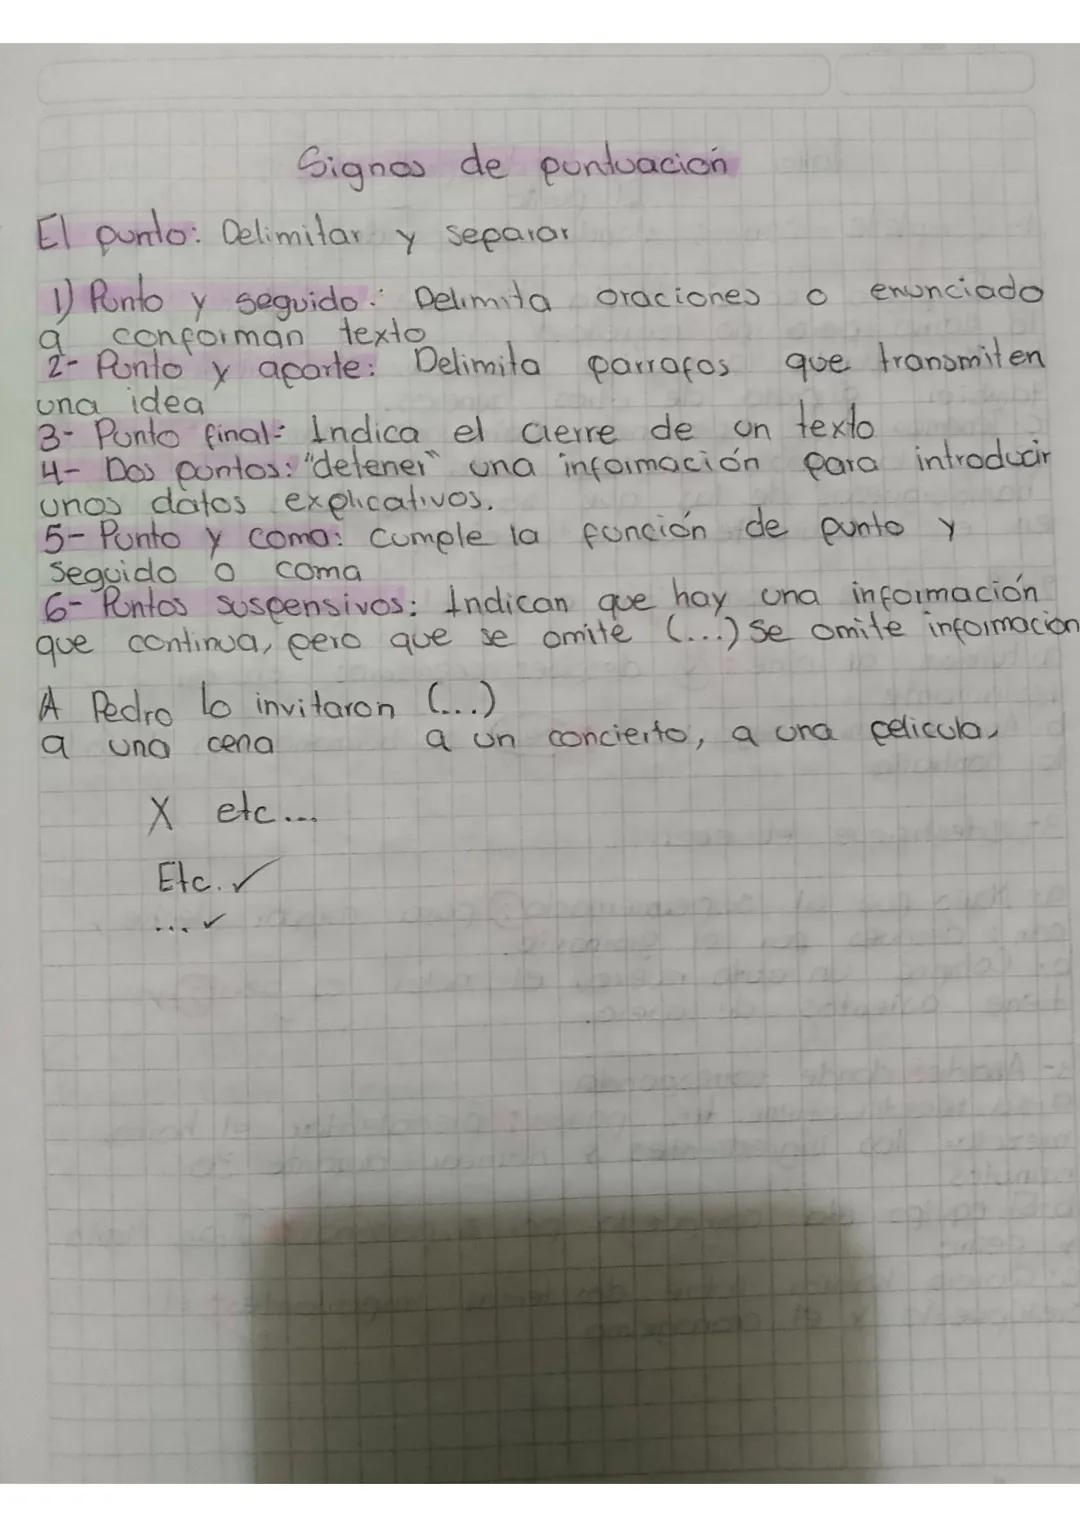 Signos de puntuación
El punto: Delimitar y separar
1) Punto y seguido: Delimita oraciones o enunciado
q conforman texto
2- Punto y aparte: Delimita parrafos que transmiten
una idea
3- Punto final: Indica el cierre de un texto
4- Dos puntos: "detener" una información para introducir
unos datos explicativos.
5- Punto y coma: Cumple la función de punto y
seguido o coma
6- Puntos suspensivos: Indican que hay una información
que continua, pero que se omite (...) Se omite información
A Pedro lo invitaron (...)
a una cena a un concierto, a una pelicula,
X etc...
Etc. ✓
... ✓